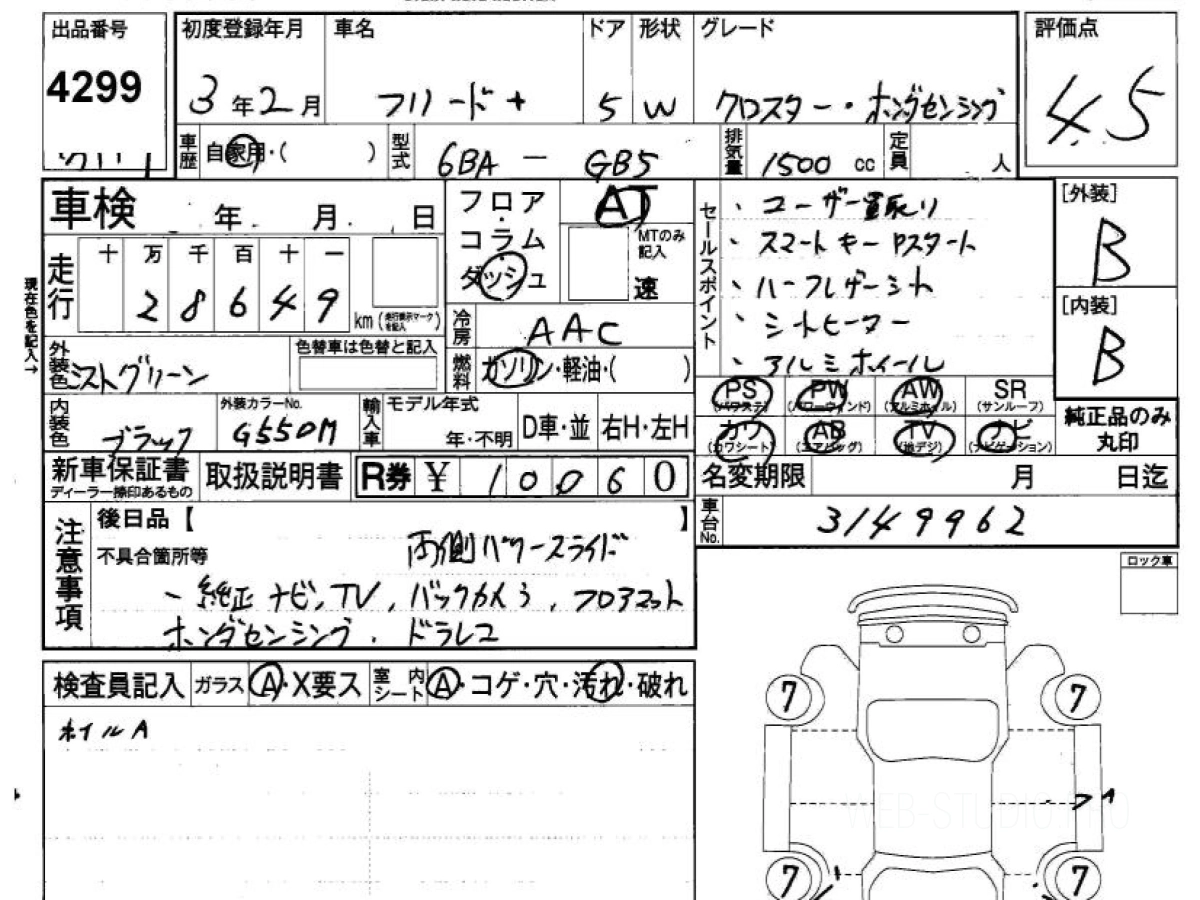 出品番号
4299
初度登録年月
3年2月
車名
フリード+
ドア
5
形状
W
グレード
クロスター・ホンダセンシング
評価点
4.5
車歴 自家用・( )
型式 6BA - GB5
排気量 1500 cc
定員 人
車検 年 月 日
走行
十 万 千 百 十 一
2 8 6 4 9
km
現在色を記入→
外装色 ミストグリーン
色替車は色替と記入
内装色 ブラック
外装カラーNo.
G550M
フロア・コラム・ダッシュ
AT
MTのみ記入
速
冷房 AAC
燃料 ガソリン・軽油・( )
輸入車
モデル年式
年・不明
D車・並
右H・左H
セールスポイント
・ユーザー買取り
・スマートキー Pスタート
・ハーフレザーシート
・シートヒーター
・アルミホイール
[外装]
B
[内装]
B
PS PW AW SR
(パワステ) (パワーウィンド) (アルミホイル) (サンルーフ)
カワ AB TV ナビ
(カワシート) (エアバッグ) (地デジ) (ナビゲーション)
純正品のみ
丸印
新車保証書
ディーラー捺印あるもの
取扱説明書
R券 ¥ 10060
名変期限 月 日迄
車台No. 3149962
注意事項
後日品【 】
不具合箇所等
両側パワースライド
純正ナビ, TV, バックカメラ, フロアマット
ホンダセンシング. ドラレコ
ロック車
検査員記入
ガラス A・X要ス
室内シート A・コゲ・穴・汚れ・破れ
ホイルA
7 7
WEB-STUDIO.PRO
7 7